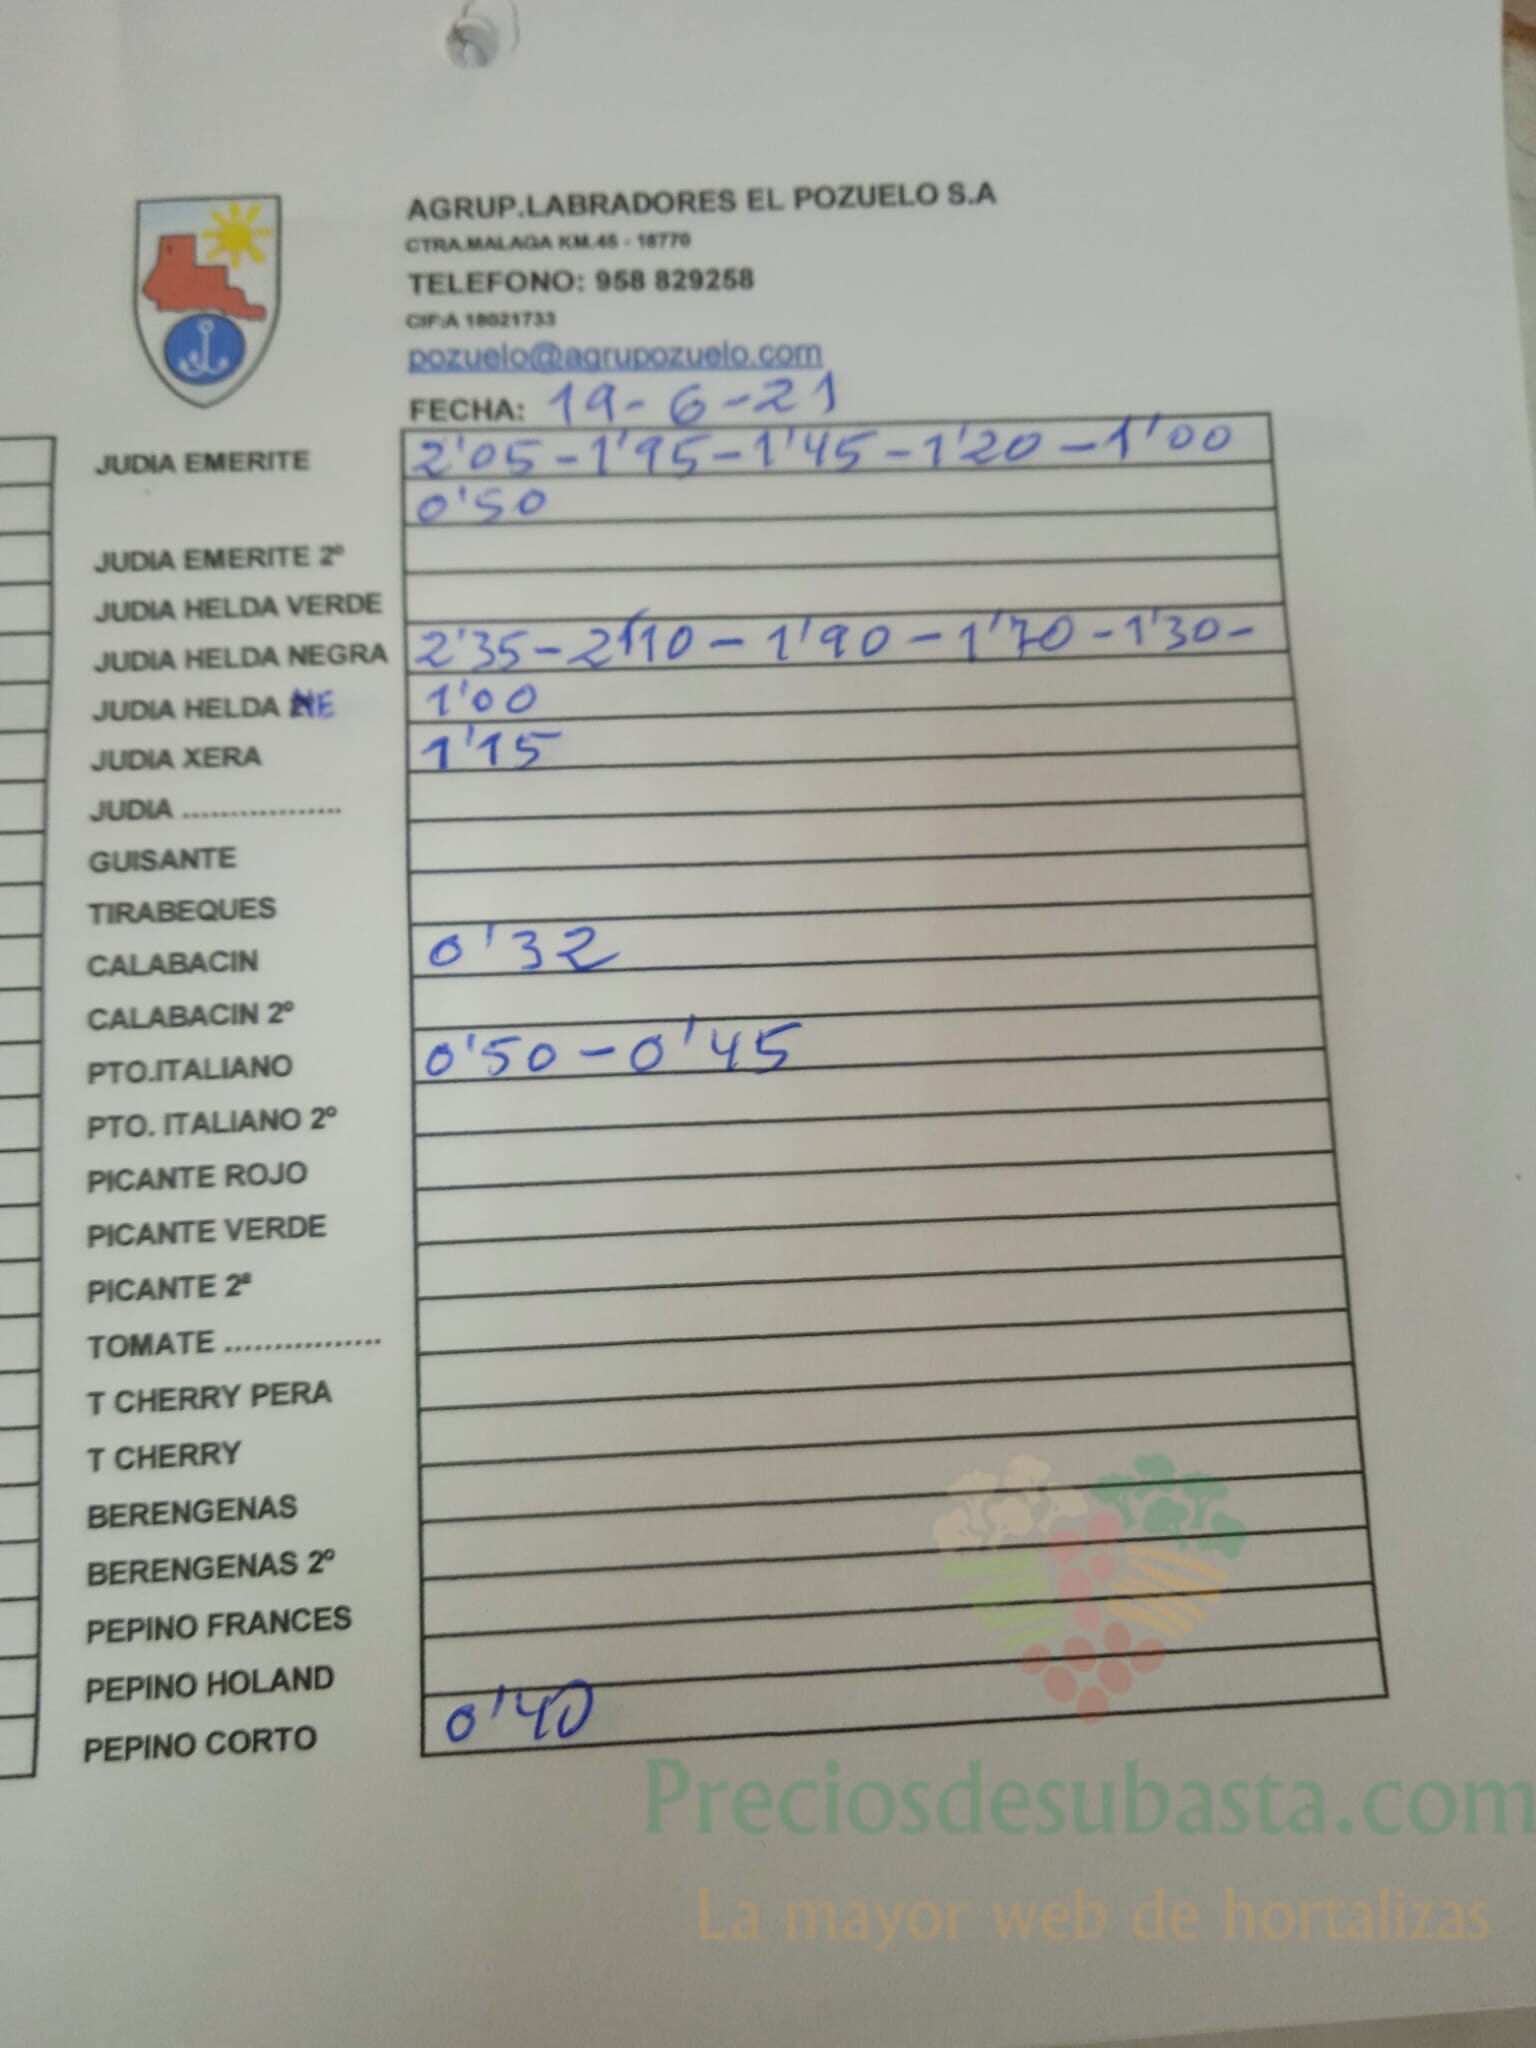 AGRUP.LABRADORES EL POZUELO S.A
CTRA.MALAGA KM.45 - 18770
TELEFONO: 958 829258
CIF:A 18021733
pozuelo@agrupozuelo.com
FECHA: 19-6-21
JUDIA EMERITE 2'05-1'95-1'45-1'20-1'00
0'50
JUDIA EMERITE 2º
JUDIA HELDA VERDE
JUDIA HELDA NEGRA 2'35-2'10-1'90-1'70-1'30-
JUDIA HELDA NE 1'00
JUDIA XERA 1'15
JUDIA .................
GUISANTE
TIRABEQUES
CALABACIN 0'32
CALABACIN 2º
PTO.ITALIANO 0'50-0'45
PTO. ITALIANO 2º
PICANTE ROJO
PICANTE VERDE
PICANTE 2ª
TOMATE .................
T CHERRY PERA
T CHERRY
BERENGENAS
BERENGENAS 2º
PEPINO FRANCES
PEPINO HOLAND
PEPINO CORTO 0'40
Preciosdesubasta.com
La mayor web de hortalizas